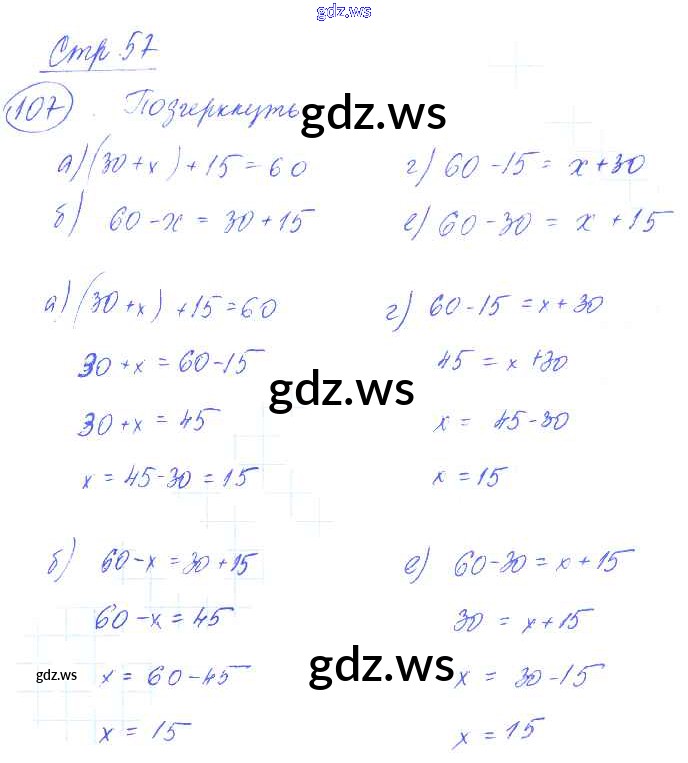 gdz.ws
Стр 57
107. Подчеркнуть
gdz.ws
а) (30+x)+15=60
г) 60-15= x+30
б) 60-x = 30+15
е) 60-30= x+15
а) (30+x)+15=60
г) 60-15=x+30
30+x=60-15
45=x+30
gdz.ws
30+x=45
x= 45-30
x=45-30=15
x=15
б) 60-x=30+15
е) 60-30=x+15
60-x=45
30=x+15
gdz.ws
gdz.ws
x= 60-45
x= 30-15
x= 15
x=15